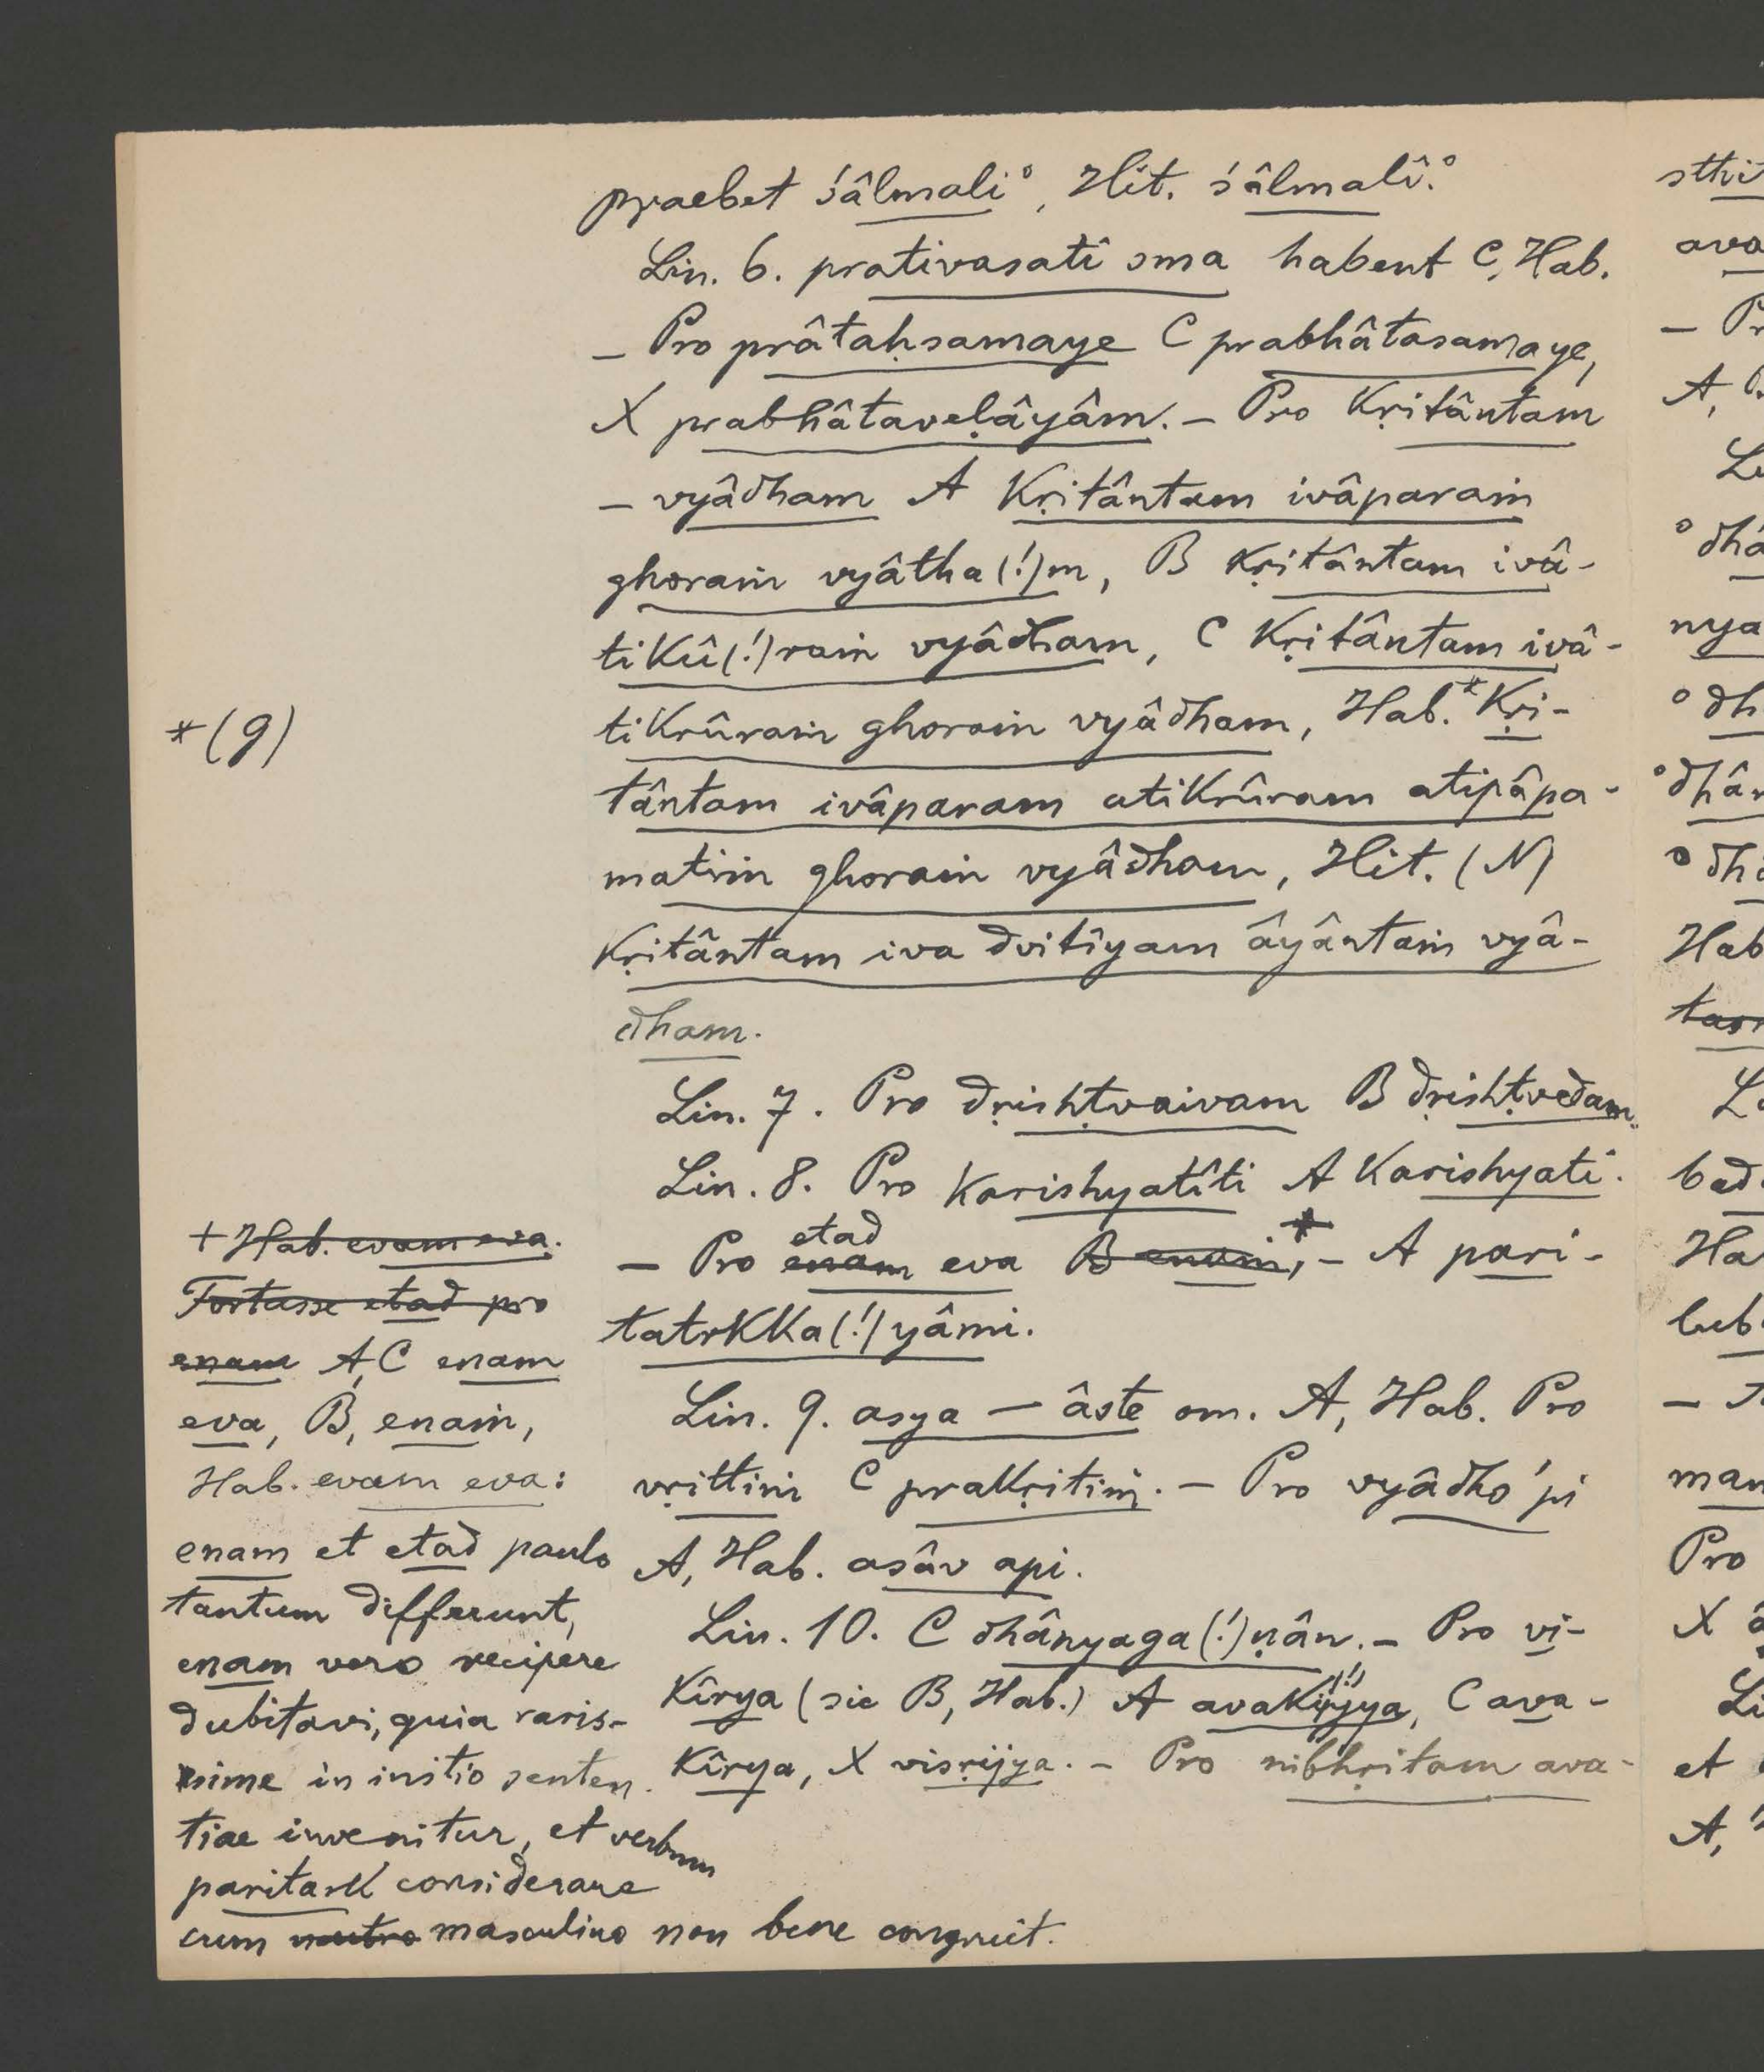 praebet śâlmali°, Hit. śâlmalî.°
Lin. 6. prativasati sma habent C, Hab.
— Pro prâtaḥsamaye C prabhâtasamaye,
X prabhâtavelâyâm. — Pro Kṛitântam
— vyâdham A Kṛitântam ivâparaṁ
ghoraṁ vyâtha(!)m, B Kṛitântam ivâ-
tikû(!)raṁ vyâdham, C Kṛitântam ivâ-
tikrûraṁ ghoraṁ vyâdham, Hab.* Kṛi-
*(g)
tântam ivâparam atikrûram atipâpa-
matiṁ ghoraṁ vyâdham, Hit. (N)
Kṛitântam iva dvitîyam âyântaṁ vyâ-
dham.
Lin. 7. Pro dṛishṭvaivam B dṛishṭvedam.
Lin. 8. Pro karishyatîti A karishyati.
— Pro enam etad eva B enaṁ,* — A pari-
tatrkka(!)yâmi.
Lin. 9. asya — âste om. A, Hab. Pro
vṛittiṁ C prakṛitiṁ. — Pro vyâdho 'pi
A, Hab. asâv api.
Lin. 10. C dhânyaga(!)ṇân. — Pro vi-
kîrya (sic B, Hab.) A avakîrjya(!), C ava-
kîrya, X visṛijya. — Pro nibhṛitam ava-
+ Hab. evam eva.
Fortasse etad pro
enam A, C enam
eva, B, enaṁ,
Hab. evam eva:
enam et etad paulo
tantum differunt,
enam vero recipere
dubitavi, quia raris-
sime in initio senten-
tiae invenitur, et verbum
paritark considerare
cum neutro masculino non bene congruit.
sthi
ava
— Pr
A,
L
°dhâ
nya
°dh
°dhân
°dhâ
Hab
tas
L
bad
Ha
lub
—
man
Pro
X
Li
et
A,